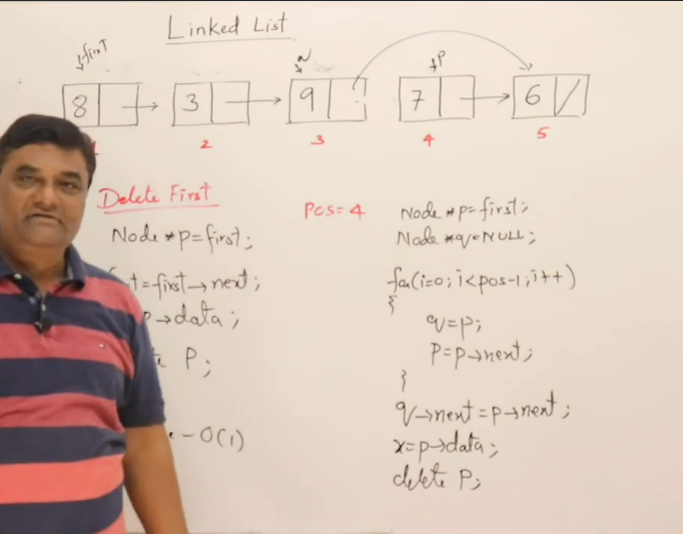 Linked List
first
q
p
8
3
9
7
6
2
3
4
5
Delete First
Node *p=first;
t=first→next;
→data;
P;
- O(1)
Pos= 4
Node *p=first;
Node *q=NULL;
for(i=0; i<pos-1; i++)
{
q=p;
P=p→next;
}
q→next=p→next;
x=p→data;
delete P;